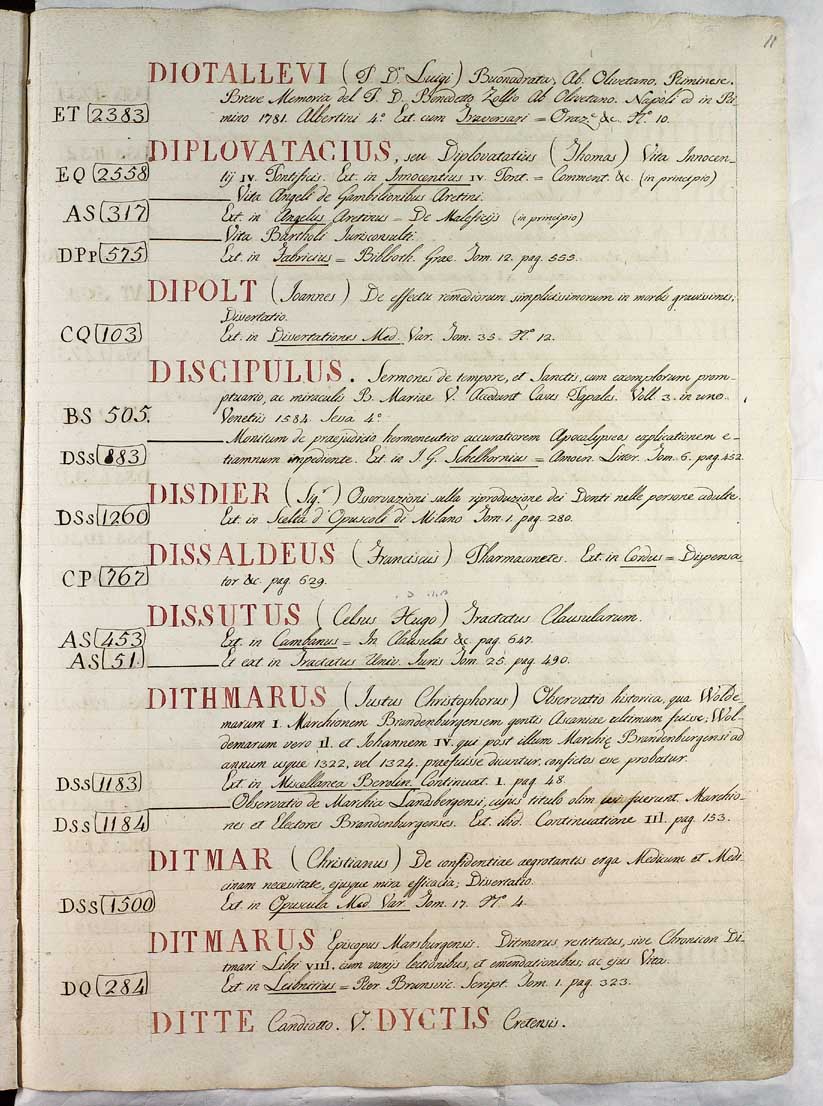 11
DIOTALLEVI (P. Dn Luigi) Buonadrata, Ab. Olivetano, Riminese.
Breve Memoria del P. D. Benedetto Zollio Ab Olivetano. Napoli ed in Ri-
ET 2383 mino 1781. Albertini 4.º Ext. cum Traversari = Oraz.e &c. N.º 10.
DIPLOVATACIUS, seu Diplovatatius (Thomas) Vita Innocen-
EQ 2558 tij IV. Pontificis. Ext. in Innocentius IV. Pont. = Comment. &c. (in principio)
Vita Angeli de Gambilionibus Aretini.
AS 317 Ext. in Angelus Aretinus = De Maleficijs (in principio)
Vita Bartholi Iurisconsulti.
DPp 575 Ext. in Fabricius = Biblioth. Grae. Tom. 12. pag. 555.
DIPOLT (Ioannes) De effectu remediorum simplicissimorum in morbis gravissimis;
Dissertatio.
CQ 103 Ext. in Dissertationes Med. Var. Tom. 35. N.º 12.
DISCIPULUS. Sermones de tempore, et Sanctis, cum exemplorum prom-
ptuario, ac miraculis B. Mariae V. Accedunt Casus Papales. Voll. 3. in uno.
BS 505. Venetiis 1584. Sessa 4.º
Monitum de praejudicio hermeneutico accuratiorem Apocalypseos explicationem e-
DSs 883 tiamnum impediente. Ext. in I. G. Schelhornius = Amoen. Litter. Tom. 6. pag. 452.
DISDIER (Sig.r) Osservazioni sulla riproduzione dei Denti nelle persone adulte.
DSs 1260 Ext. in Scelta d'Opuscoli di Milano Tom. 1. pag. 280.
DISSALDEUS (Franciscus) Pharmacoretes. Ext. in Cordus = Dispensa-
CP 767 tor &c. pag. 629.
DISSUTUS (Celsus Hugo) Tractatus Clausularum.
AS 453 Ext. in Cambanus = In Clausulas &c. pag. 647.
AS 51. Et ext in Tractatus Univ. Iuris Tom. 25. pag. 490.
DITHMARUS (Iustus Christophorus) Observatio historica, qua Wolde-
marum I. Marchionem Brandenburgensem gentis Ascaniae ultimum fuisse; Wol-
demarum vero II. et Iohannem IV. qui post illum Marchię Brandenburgensi ad
annum usque 1322, vel 1324. praefuisse dicuntur, confictos esse probatur.
DSs 1183 Ext. in Miscellanea Berolin. Continuat. I. pag. 48.
Observatio de Marchia Landsbergensi, cujus titulo olim usi fuerunt Marchio-
DSs 1184 nes et Electores Brandenburgenses. Ext. ibid. Continuatione III. pag. 153.
DITMAR (Christianus) De confidentiae aegrotantis erga Medicum et Medi-
cinam necessitate, ejusque mira efficacia; Dissertatio.
DSs 1500 Ext. in Opuscula Med. Var. Tom. 17. N.º 4.
DITMARUS Episcopus Marsburgensis. Ditmarus, restitutus, sive Chronicon Di-
tmari Libri VIII. cum varijs lectionibus, et emendationibus, ac ejus Vita.
DQ 284 Ext. in Leibnitius = Rer. Brunsvic. Script. Tom. 1. pag. 323.
DITTE Candiotto. V. DYCTIS Cretensis.